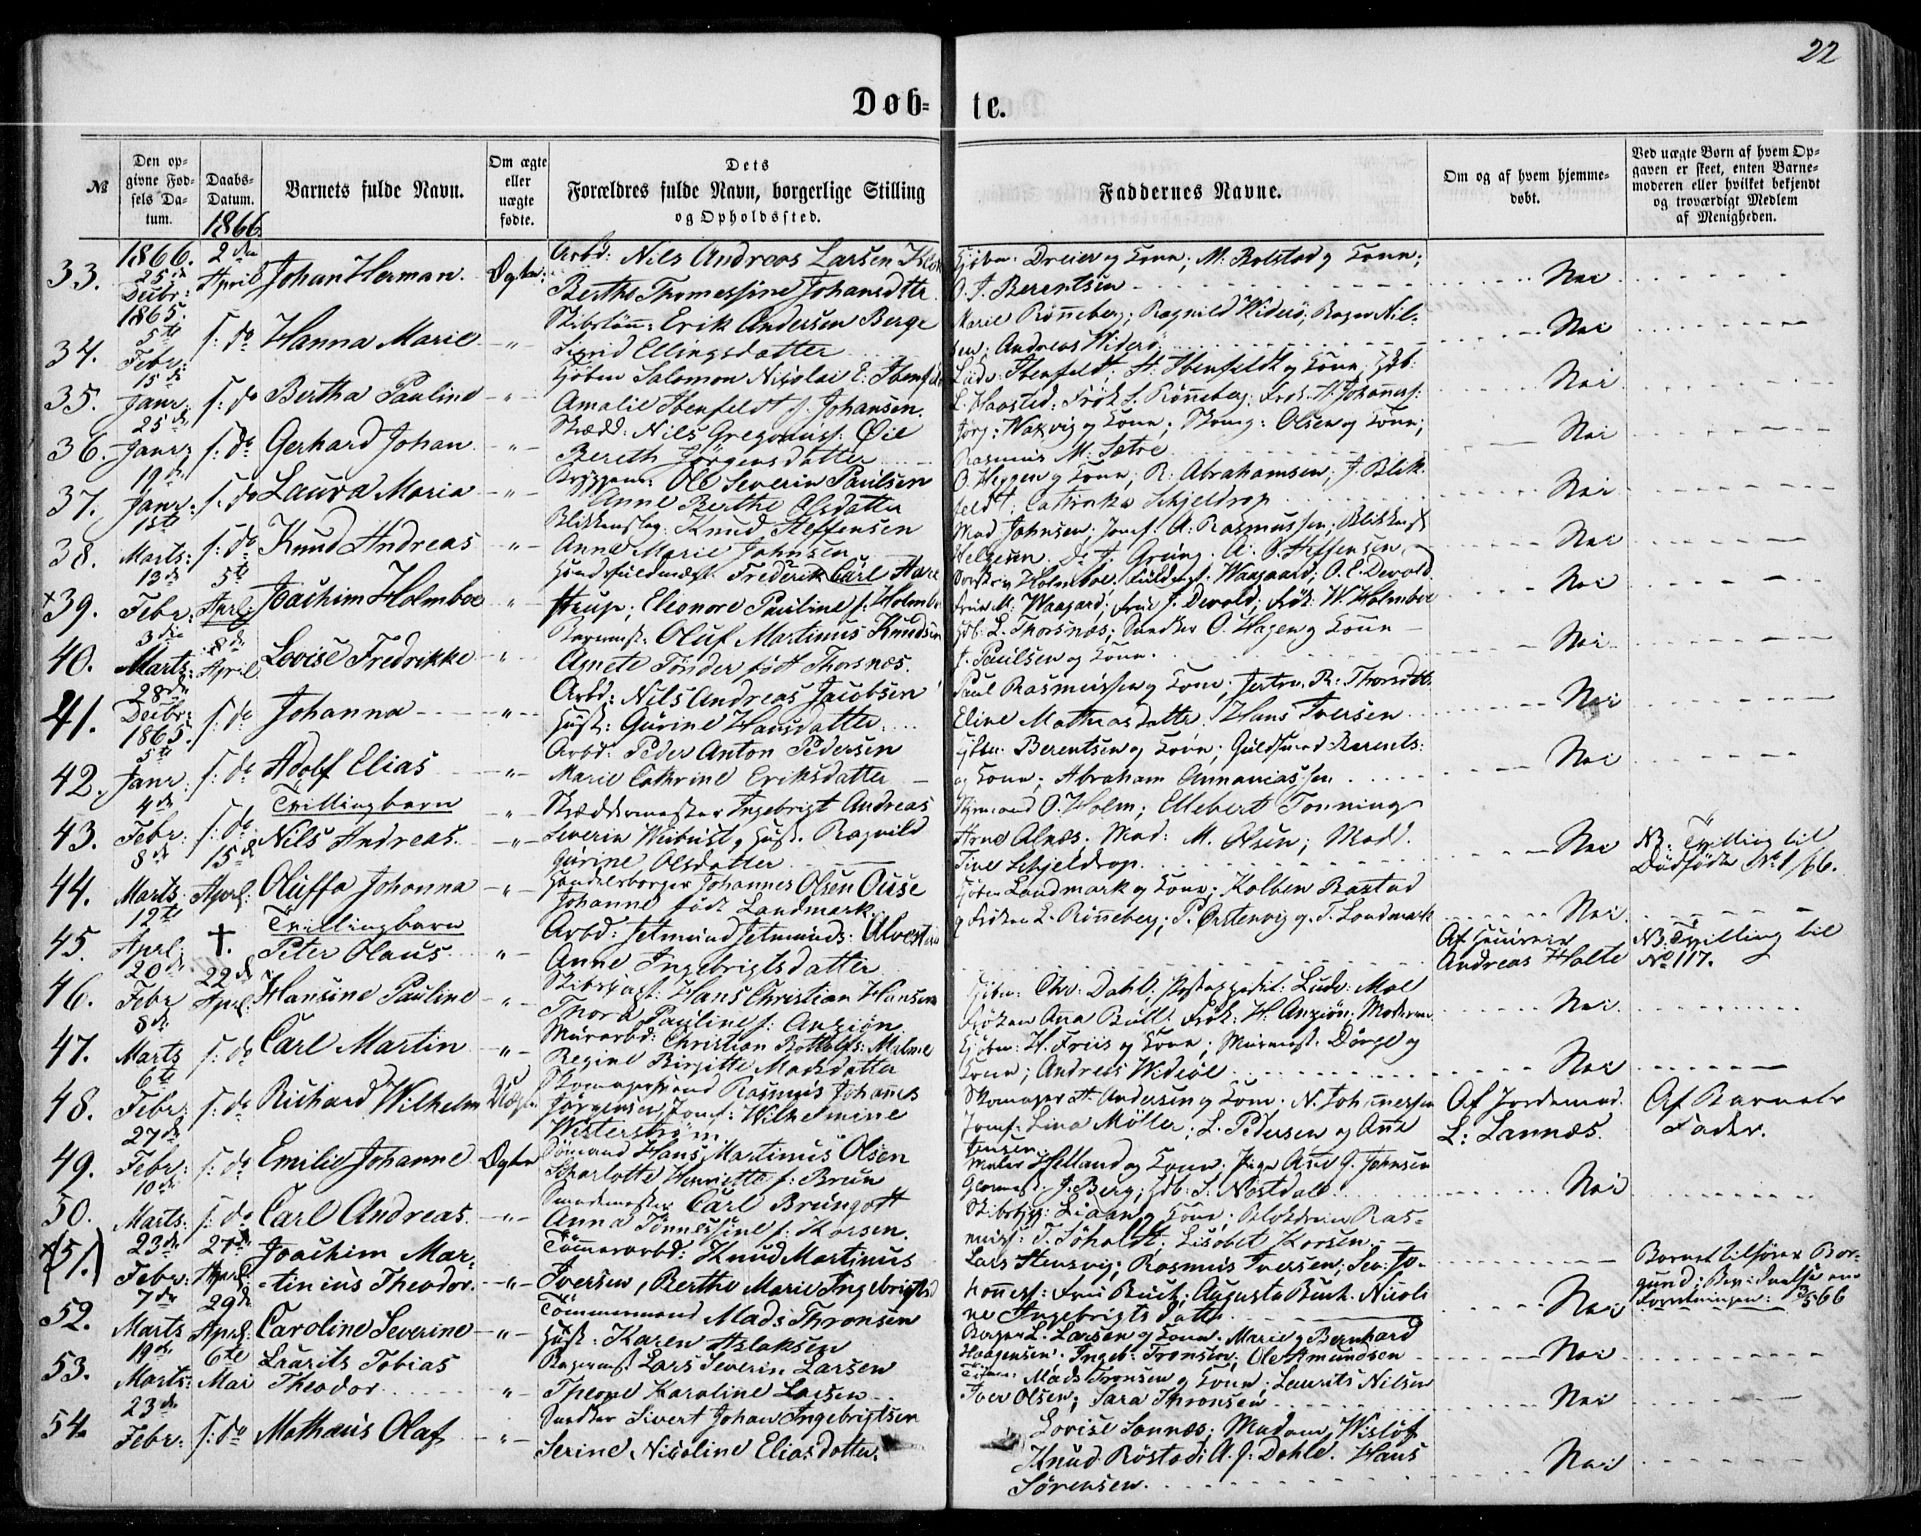 22
Døb- te.
№
Den op-
givne Fød-
sels Da-
tum.
Daabs-
Datum.
1866
Barnets fulde Navn.
Om ægte
eller
uægte
fødte.
Dets
Forældres fulde Navn, borgerlige Stilling
og Opholdssted.
Faddernes Navne.
Om og af hvem hjemme-
døbt.
Ved uægte Børn af hvem Op-
gaven er skeet, enten Barne-
moderen eller hvilket bekjendt
og troværdigt Medlem
af Menigheden.
1866.
33. 25de Decbr: 1865. 2den April Johan Herman Ægte:
Arbd: Nils Andreas Larsen
Berthe Thomessine Johansdatter
Dreier og Kone; M: Rolstad og Kone;
O. J. Berentsen
Nei
34. 5te Febr: s: do Hanna Marie "
Erik Andersen Berge
Sigrid Ellingsdatter
Marie Rønneberg; Ragnild Widerö; Roger Nil-
sen; Andreas Widerö
Nei
35. 15de Janr: s: do Bertha Pauline "
Kjøbm Salomon Nicolai E: Ibenfeldt
Amalie Ibenfeldt f. Johansen.
Ludv: Ibenfeldt; H. Ibenfeldt og Kone;
L. Haasted; Frøk S. Rønneberg; Frøk. H. Johannes:
Nei
36. 25de Janr: s: do Gerhard Johan "
Skræd: Nils Gregorius: Øie
Bereth Jörgensdatter
Jørg: Waxvig og Kone; Olsen og Kone;
Rasmus M: Sætre
Nei
37. 19de Janr: s: do Laura Maria "
Ole Severin Paulsen
Anne Berthe Olsdatter
O. Heggen og Kone; R. Abrahamsen; J. Blik-
feldt; Cathinka Schjeldrop
Nei
38. 1ste Marts: s: do Knud Andreas "
Blikkenslag: Knud Steffensen
Anna Marie Johnsen
Mad Johnsen; Jomf: A: Rasmussen; Blikkensl
Helgesen. A: O. Steffensen
Nei
×39. 13de Febr: 5te Aprl: Joachim Holmboe "
Frederik Carl Aare
strup; Eleonore Pauline f. Holmboe
Holmboe; Fuldm: Waagaard; O. C. Devold.
Frue M: Waagaard; Frue J. Devold; Frøk: W. Holmboe
Nei
40. 3die Marts: 8de April Lovise Fredrikke "
Oluf Martinus Knudsen
Agnete født Thorsnæs.
L. Thorsnæs; Snedker O. Hagen og Kone
J. Paulsen og Kone.
Nei
41. 28de Decbr: 1865. s: do Johanna "
Arbd: Nils Andreas Jacobsen
Hust: Gurine Hansdatter
Paul Rasmussen og Kone; R: Thorsdatt:
Eline Mathiasdatter. Hans Iversen
Nei
42. 5te Janr: s: do Adolf Elias "
Arbd: Peder Anton Pedersen
Marie Cathrine Eriksdatter
Berentsen og Kone; Guldsmed Berents:
og Kone; Abraham Annaniassen
Nei
43. 4de Febr: s: do Tvillingbarn
Nils Andreas "
Skræddermester Ingebrigt Andreas
Severin og Hust: Ragnild
Gurine Olsdatter
Styrmand O. Holm; Ellebert Tonning
Arne Alnæs; Mad: M. Olsen; Mad.
Tine Schjeldrop
Nei
NB: Tvilling til
Dødfødte No 1/66.
44. 8de Marts: 15de Aprl: Oluffa Johanna "
Handelsborger Johannes Olsen Ouse
Johanne født Landmark
Kjøbm Landmark og Kone; Kolben Bastad
og Frøken L. Rønneberg; P. Ørstenvig og T. Landmark
Nei
45. 19de Aprl: †. Tvillingbarn
Peter Olaus "
Arbd: Jetmund Jetmunds: Alvestad
Anne Ingebrigtsdatter
Af
Andreas Holte
NB: Tvilling til
No 117.
46. 20de Febr 22de Aprl: Hansine Pauline "
Hans Christian Hansen
Thora Pauline f: Anzjön
Chr: Dahl; Postexpedit: Ludv: Moe
Frøken Ana Bull; Frøk: H. Anzjön; Moderen
Nei
47. 8de Marts s: do Carl Martin "
Murarbd: Christian Bottolfs: Malme
Regine Birgitte Madsdatter
Kjøbm: H. Friis og Kone; Murmest: Dörge og
Kone; Andreas Wideröe
Nei
48. 6te Febr: s: do Richard Wilhelm Uægte
Skomagersvend Rasmus Johannes
Jørgensen; Jomf: Wilhelmine
Wisterström
Skomager A. Andersen og Kone. N. Johannessen
Jomf: Lina Möller; L. Pedersen og Ane
Jensen
Af Jordemod.
L: Lannæs.
Af Barnets
Fader.
49. 27de Febr: s: do Emilie Johanne Ægte
Sömand Hans Martinus Olsen
Scharlotte Henriette f: Brun
Maler Helland og Kone; Pige Ane J. Johnsen
J. Berg; S. Nostdal.
Nei
50. 10de Marts: s: do Carl Andreas "
Smedmester Carl Brungott
Anna Tønnessine f: Korsen.
Liaan og Kone; Ras-
muss: T. Söholdt; Lisabet Korsen.
×(51.) 23de Febr: 27de Aprl: Joachim Mar-
tinius Theodor. "
Tömmerarbd: Knud Martinus
Iversen, Berthe Marie Ingebrigtsd
Lars Stensvig; Rasmus Iversen; Sev: Jo-
hanness: Frue Buch; Augusta Buch. Nicoli
ne Ingebrigtsdatter
Nei
Barnet tilhører Bor-
gund;
52. 7de Marts 29de Aprl: Caroline Severine "
Tømmermand Mads Thronsen
Hust: Karen Aslaksen
L. Larsen og Kone. Marie og Bernhard
Haagensen. Ingeb: Tronsen; Ole Amundsen
Nei
53. 19de Marts: 6te Mai Laurits Tobias
Theodor "
Lars Severin Larsen
Karoline Larsen
Mads Tronsen og Kone; Laurits Nilsen
Iver Olsen; Sara Thronsen
Nei
54. 23de Febr: s: do Mathæus Olaf "
Snedker Sivert Johan Ingebrigtsen
Serine Nicoline Eliasdatter.
Lovise Sonnæs; Madam Wisløf
Knud Röstad; A. J. Dahle. Hans
Sørensen.
Nei